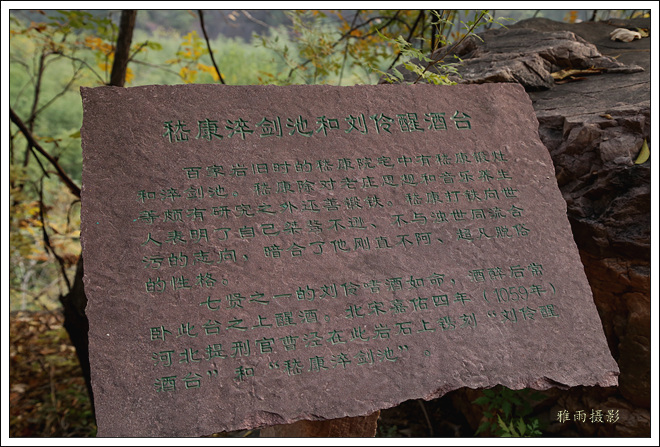 嵇康淬剑池和刘伶醒酒台
百家岩旧时的嵇康院宅中有嵇康锻灶
和淬剑池。嵇康除对老庄思想和音乐养生
等颇有研究之外还善锻铁。嵇康打铁向世
人表明了自己桀骜不逊、不与浊世同流合
污的志向，暗合了他刚直不阿、超凡脱俗
的性格。
七贤之一的刘伶嗜酒如命，酒醉后常
卧此台之上醒酒。北宋嘉佑四年（1059年）
河北提刑官曹泾在此岩石上镌刻“刘伶醒
酒台”和“嵇康淬剑池”。
雅雨摄影